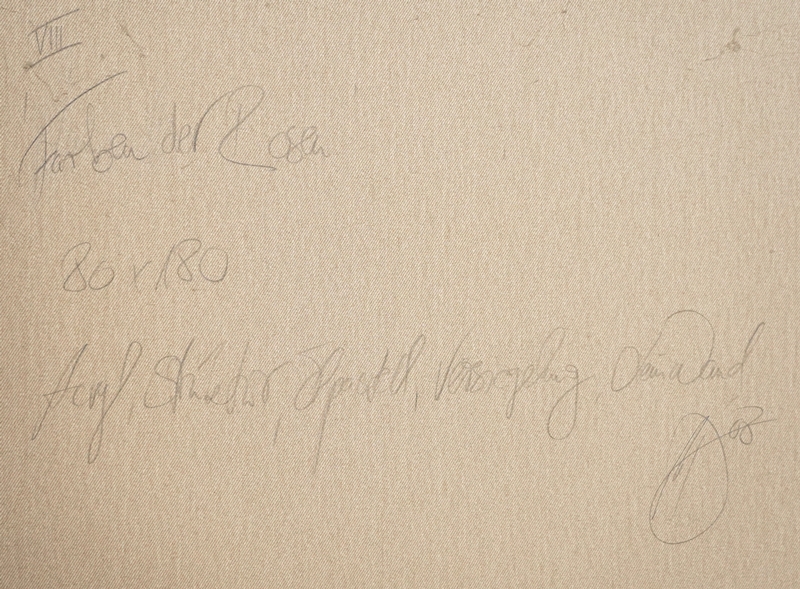 VIII
Farben der Rosen
80 x 180
Acryl, Struktur, Ölpastell, Versiegelung, Leinwand
08